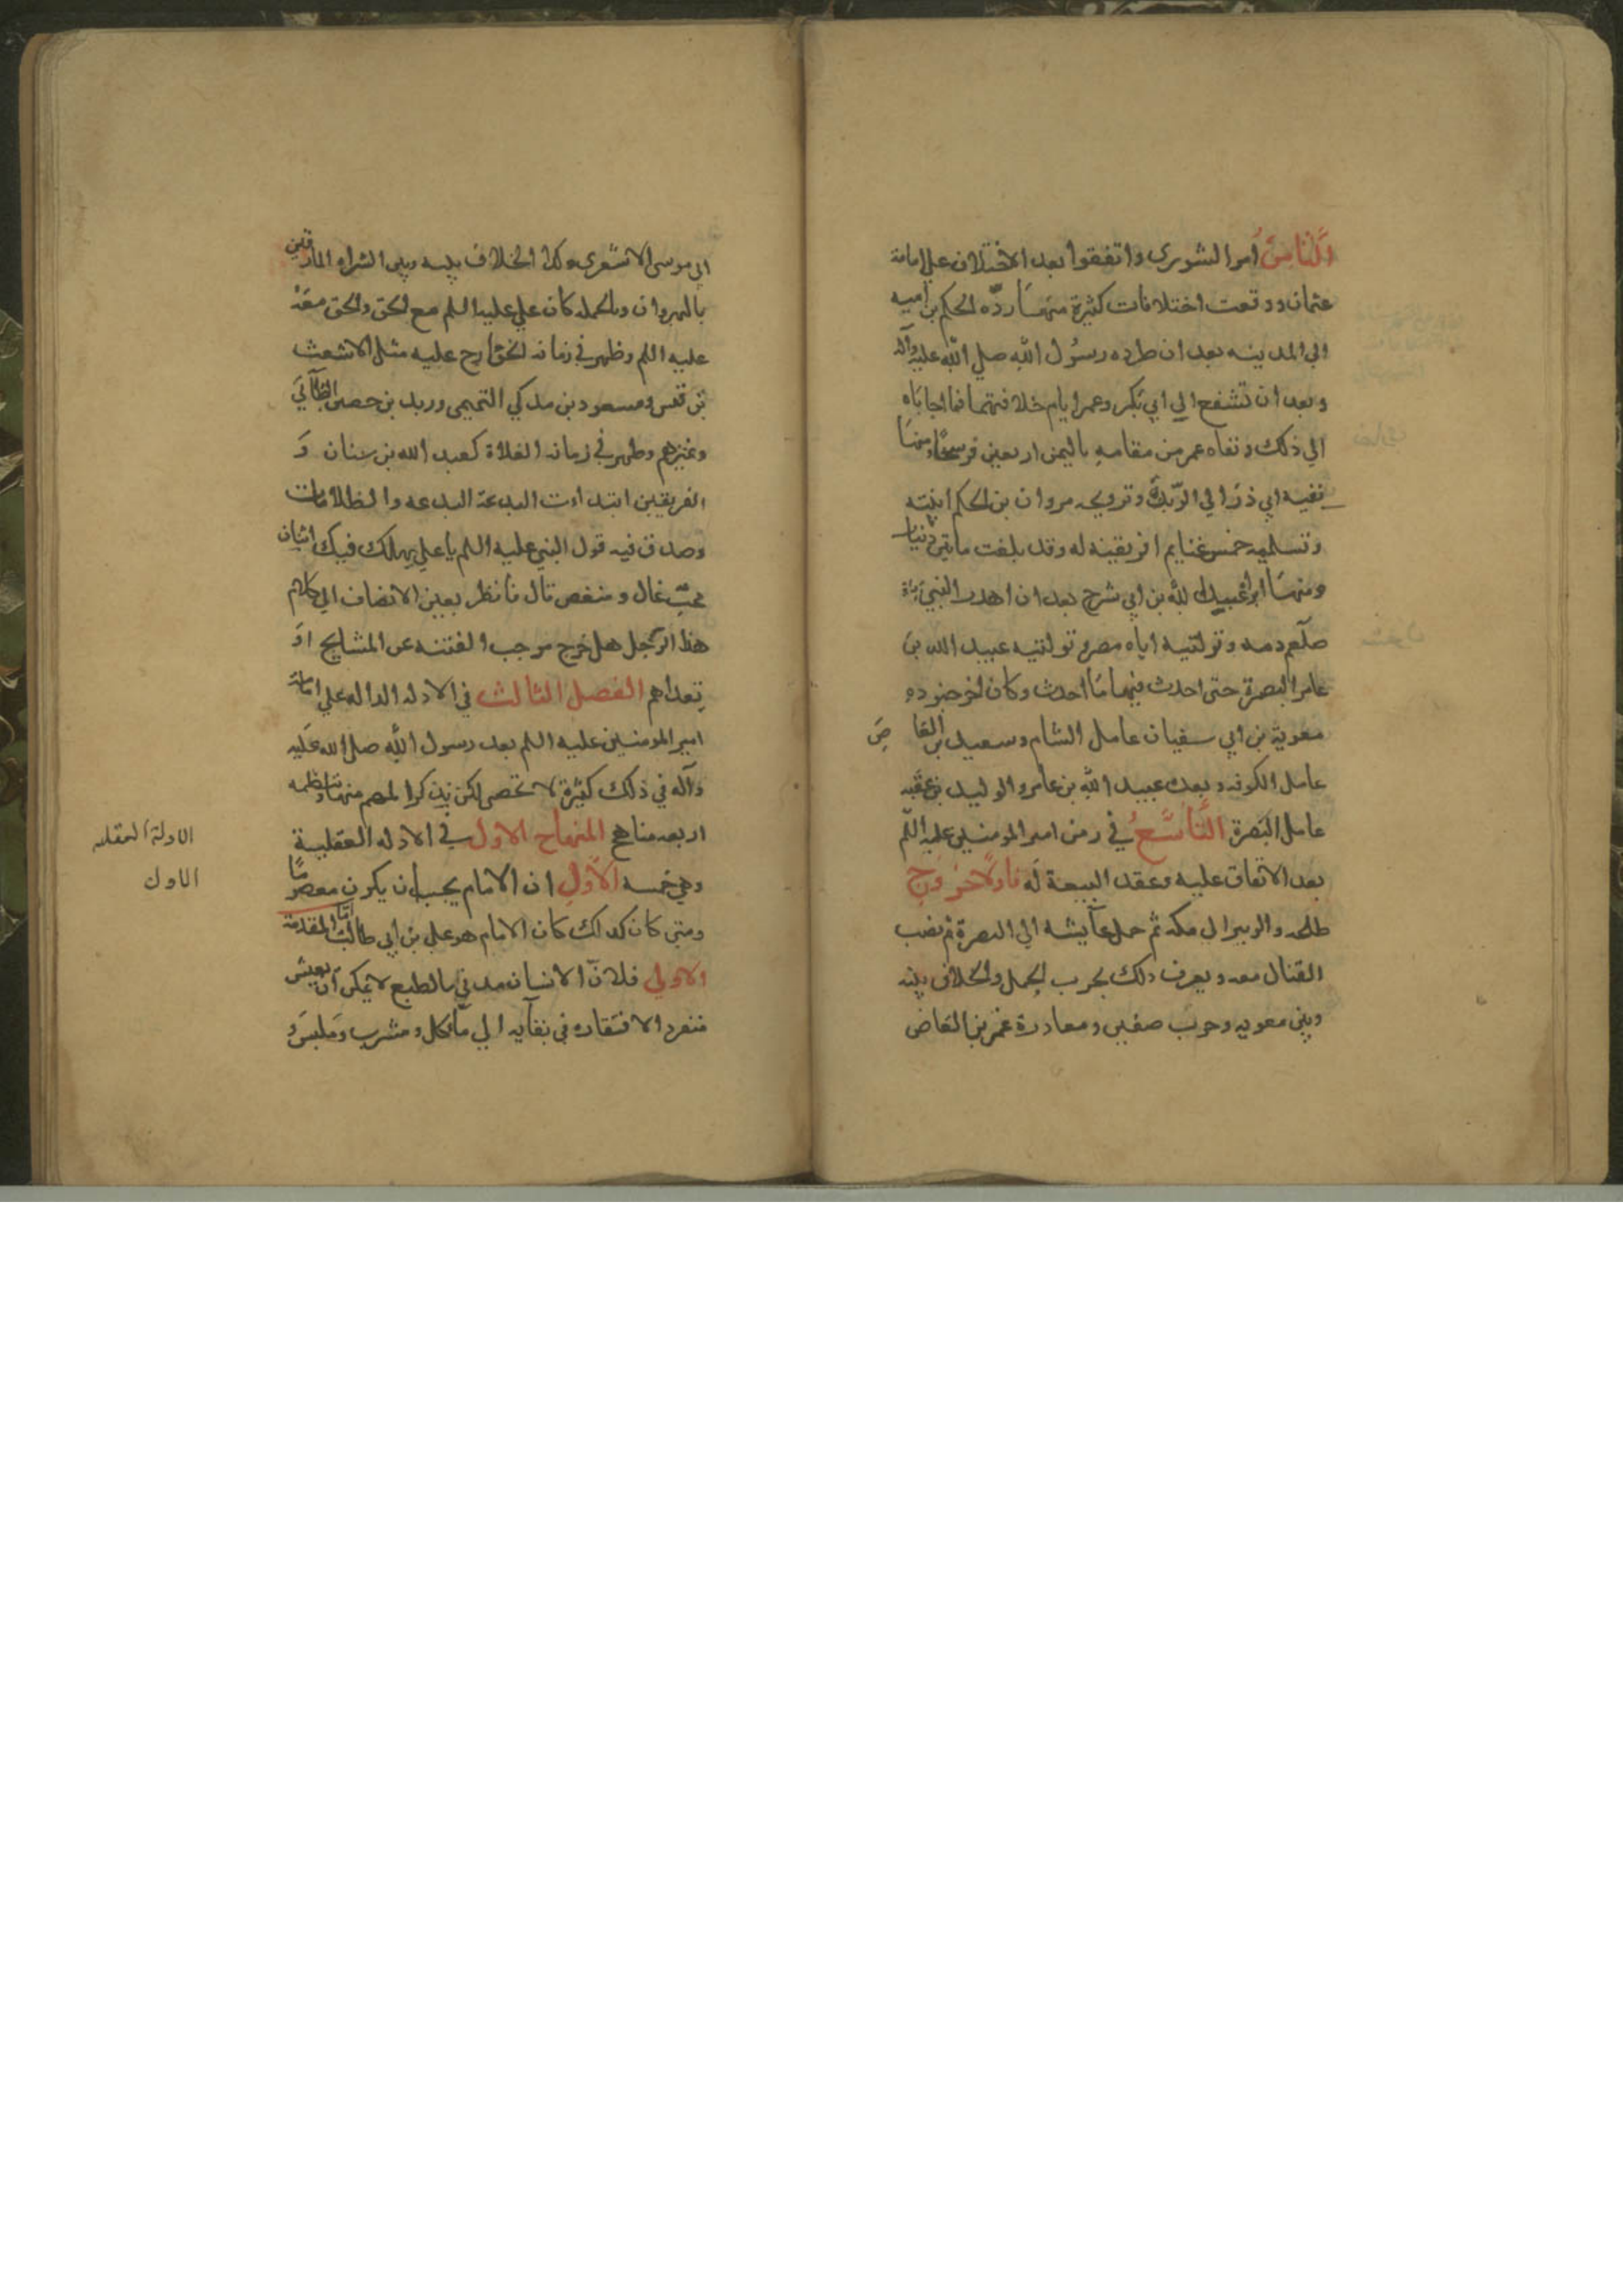 الثامنُ امر الشورى واتفقوا بعد الاختلاف على امامة
عثمان ووقعت اختلافات كثيرة منها ردّه الحكم بن اميه
الى المدينه بعد ان طرده رسُول الله صلي الله عليه وآله
وبعد ان تشفع الي ابي بكر وعمر ايام خلافتهما فما اجاباه
الي ذلك ونفاه عمر من مقامه باليمن اربعين فرسخا ومنها
نفيه ابي ذر الي الربذة وتزويجه مروان بن الحكم ابنته
وتسليمه خمس غنايم افريقيه له وقد بلغت مايتي دنيار
ومنها عبيد الله بن ابي شرح بعد ان اهدر النبي
صلعم دمه وتوليته اياه مصر وتوليته عبيد الله بن
عامر البصرة حتى احدث فيها ما احدث وكان اخر جنوده
معوية بن ابي سفيان عامل الشام وسعيد بن العا ص
عامل الكوفه وبعده عبيد الله بن عامر والوليد بن عقبه
عامل البَصرة التاسعُ في زمن امير المومنين عليه اللم
بعد الاتفاق عليه وعقد البيعة له فاولا خروج
طلحه والزبير الى مكه ثم حمل عآيشه الي البصرة ثم نصب
القتال معه ويعرف ذلك بحرب الجمل والخلاف بينه
وبين معويه وحرب صفين ومغادرة عمر بن العاص
ابي موسى الاشعرى وكذا الخلاف بينه وبين الشراه المارقين
بالنهروان وبالجمله كان علي عليه اللم مع الحق والحق معه
عليه اللم وظهر في زمانه الخوارج عليه مثل الاشعث
بن قيس ومسعود بن مدكي التميمى وزيد بن حصين الطآئي
وغيرهم وظهر في زمانه الغلاة كعبد الله بن سنان وَ
الفريقين ابتدات البدعة البدعه والظلامات
وصدق فيه قول النبي عليه اللم يا علي يهلك فيك اثنان
محبّ غال ومبغض قال فانظر بعين الانصاف الى كلام
هذا الرجل هل خرج موجب الفتنه عن المشايخ اوَ
تعداهم الفصل الثالث في الادله الداله علي امامة
امير المومنين عليه اللم بعد رسول الله صلي الله عليه
وآله في ذلك كثيرة لا تحصر لكن نذكر المهم منها وتنظمه
اربعه مناهج المنهاح الاول في الادله العقلية
وهي خمسه الأوَّل ان الامام يجب ان يكون معصومًا
ومتى كان كدلك كان الامام هو علي بن ابي طالب امّا المقدمة
الاولي فلانّ الانسان مدني بالطبع لا يمكن ان يعيش
منفرد الافتقاره في بقآيه الي مآكل ومشرب وملبس و
الادلة العقله
الاول